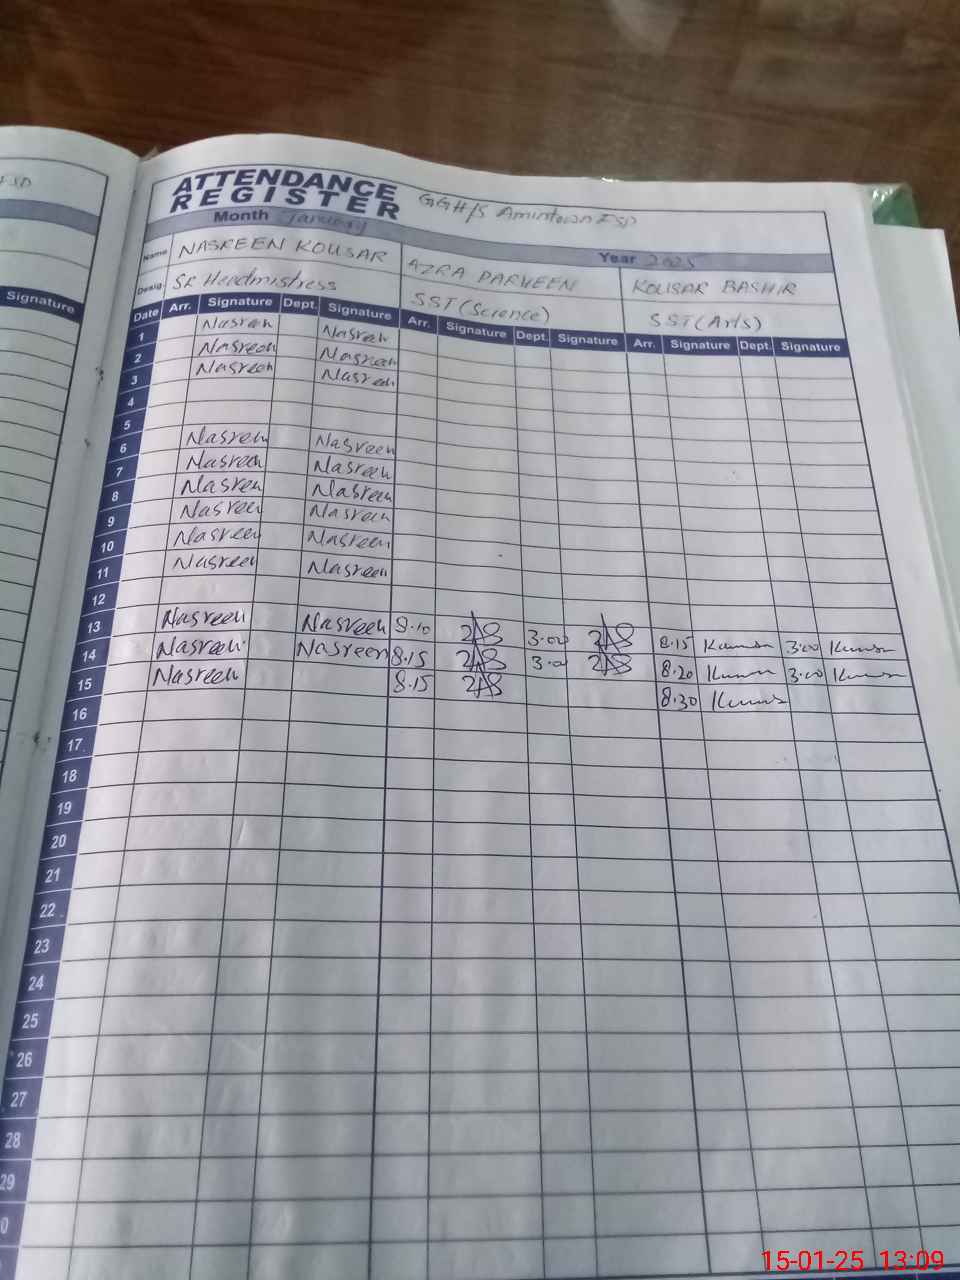 FSD
Signature
ATTENDANCE
REGISTER
GGH/S Amintown FSD
Month January
Year 2025
Name NASREEN KOUSAR AZRA PARVEEN KOUSAR BASHIR
Desig. SR Headmistress SST (Science) SST (Arts)
Date Arr. Signature Dept. Signature Arr. Signature Dept. Signature Arr. Signature Dept. Signature
1 Nasreen Nasreen
2 Nasreen Nasreen
3 Nasreen Nasreen
4
5
6 Nasreen Nasreen
7 Nasreen Nasreen
8 Nasreen Nasreen
9 Nasreen Nasreen
10 Nasreen Nasreen
11 Nasreen Nasreen
12
13 Nasreen Nasreen 8.10 3.00 8.15 3.00
14 Nasreen Nasreen 8.15 3.0 8.20 3.00
15 Nasreen 8.15 8.30
16
17
18
19
20
21
22
23
24
25
26
27
28
29
0
15-01-25 13:09